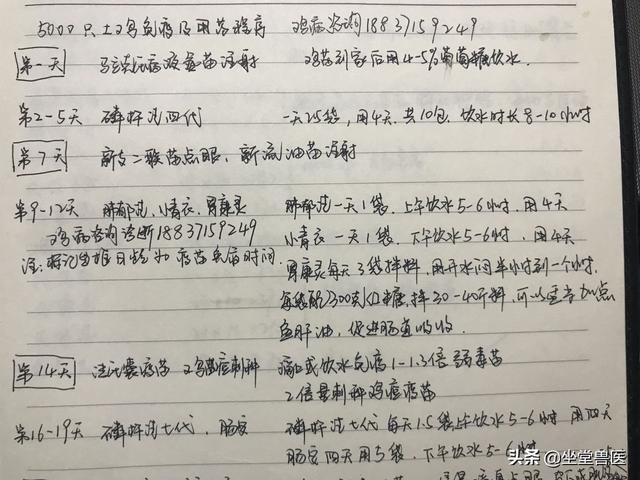 5000只土鸡免疫及用药程序 鸡病咨询18837159249
第一天 马立克氏病液氮苗注射 鸡苗到家后用4-5%葡萄糖饮水.
第2-5天 磷杆洁四代 一天2.5袋, 用4天. 共10包. 饮水时长8-10小时
第7天 新支二联苗点眼. 新流油苗注射
第9-12天 肺郁苊, 小青衣, 胃康灵 肺郁苊一天1袋. 上午饮水5-6小时. 用4天
鸡病咨询诊断18837159249 小青衣一天1袋. 下午饮水5-6小时. 用4天
注: 标记当雏日龄和疫苗免疫时间. 胃康灵每天3袋拌料, 用开水闷半小时到一个小时.
每袋配300克红糖, 拌30-40斤料, 可以适当加点
鱼肝油, 促进肠道吸收.
第14天 法氏囊疫苗 鸡痘刺种 滴口或饮水免疫1-1.3倍弱毒苗
2倍量刺种鸡痘疫苗
第16-19天 磷杆洁七代. 肠安 磷杆洁七代 每天1.5袋上午饮水5-6小时 用四天
肠安四天用5袋. 下午饮水5-6小时
头条 @坐堂兽医